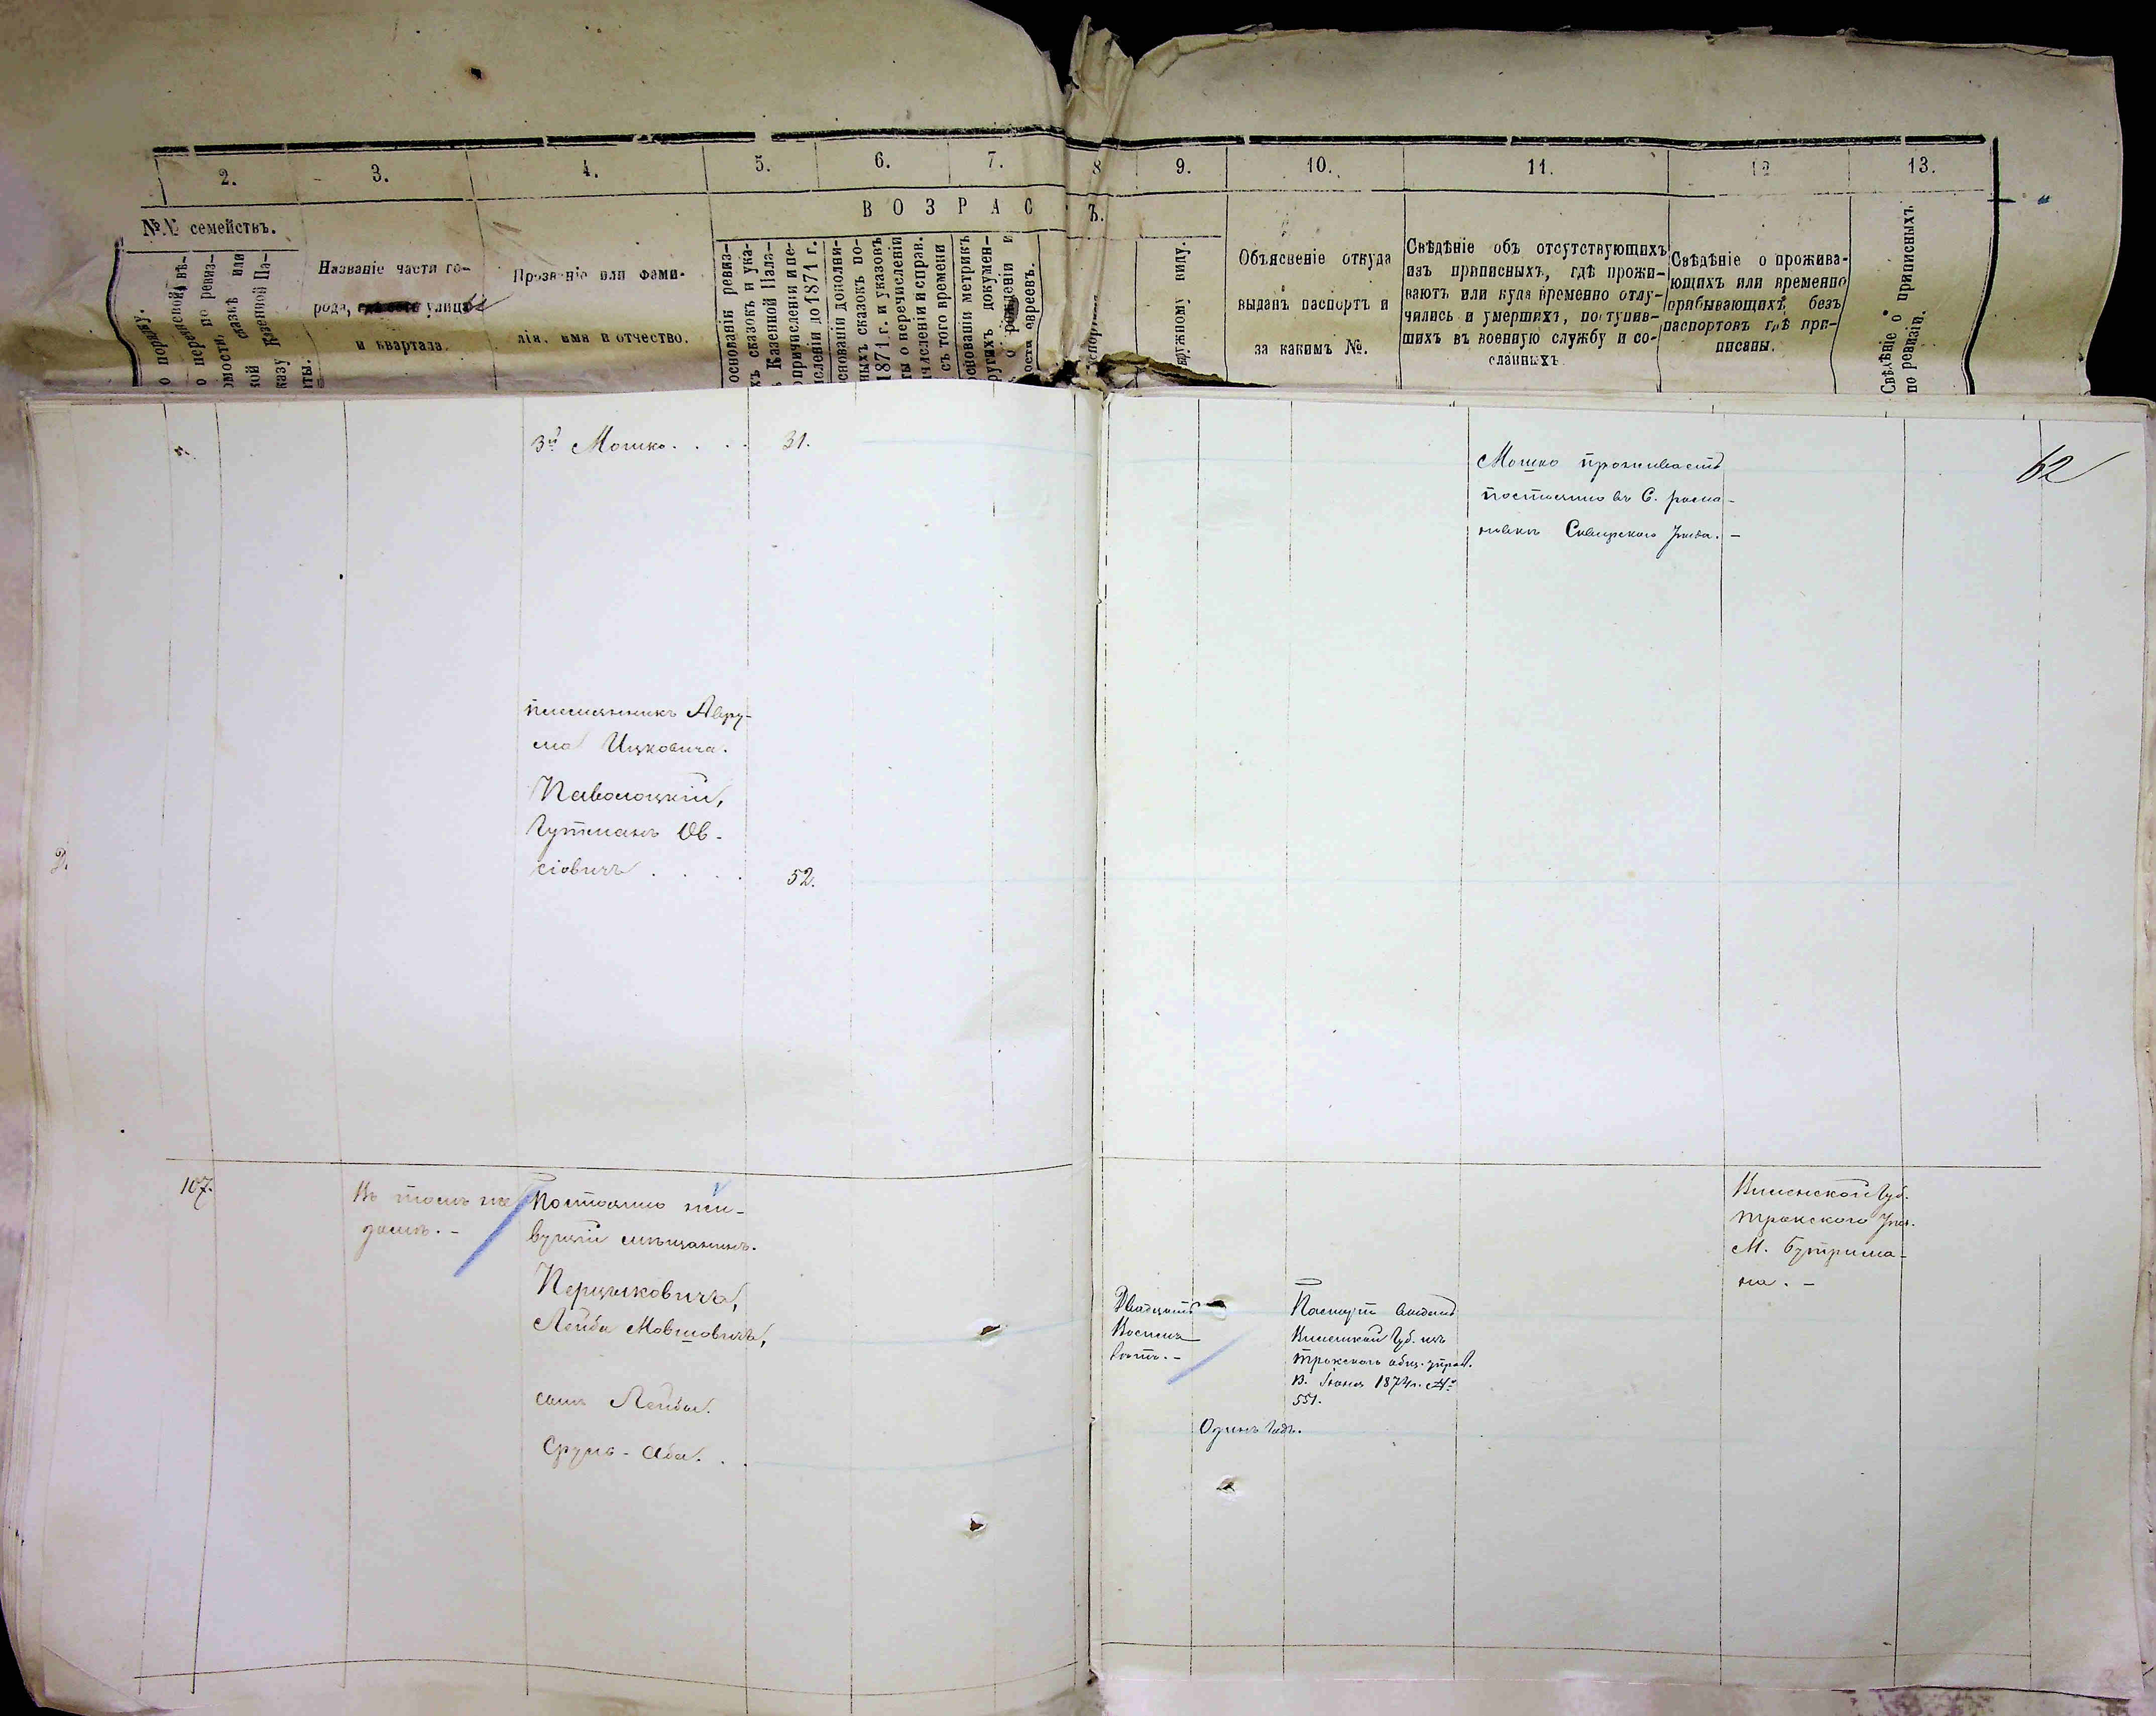 2. 3. 4. 5. 6. 7. 8 9. 10. 11. 12 13.
В О З Р А С Ъ.
№№ семействъ.
о порядку.
о переписной вѣ-
омости.
по ревиз-
кой сказкѣ или
казу Казенной Па-
ты.
Названіе части го-
рода, улицы
и квартала.
Прозваніе или фами-
лія, имя и отчество.
основаніи ревиз-
хъ сказокъ и ука-
ъ Казенной Пала-
причисленіи и пе-
исленіи до 1871 г.
основаніи дополни-
ныхъ сказокъ по-
1871 г. и указовъ
ты о перечисленіи
ичисленіи и справ.
съ того времени
основаніи метрикъ
ругихъ докумен-
о рожденіи и
ости евреевъ.
аружному виду.
Объясненіе откуда
выданъ паспортъ и
за какимъ №.
Свѣдѣніе объ отсутствующихъ
изъ приписныхъ, гдѣ прожи-
ваютъ или куда временно отлу-
чились и умершихъ, поступив-
шихъ въ военную службу и со-
сланныхъ
Свѣдѣніе о прожива-
ющихъ или временно
прибывающихъ, безъ
паспортовъ гдѣ при-
писаны.
Свѣдѣніе о приписныхъ
по ревизіи.
62
3й Мошко. . . . 31.
Мошко проживаетъ
постоянно въ С. Рома-
новкѣ Сквирскаго Уѣзда. –
племянникъ Авру-
ма Ицковича.
Паволоцкій,
Гутманъ Ов-
сіовичъ . . . . 52.
2.
107.
Въ томъ же
домѣ. –
Постоянно жи-
вущій мѣщанинъ.
Перцыковичъ,
Лейба Мовшовичъ,
сынъ Лейбы.
Сруль-Аба. . .
Двадцать
Восемь
лѣтъ. –
Одинъ годъ.
Паспортъ выданъ
Виленской Губ. изъ
Трокского общ. управ.
13. Іюня 1874 г. №
551.
Виленской Губ.
Трокского Уѣз.
М. Бутрима-
на. –